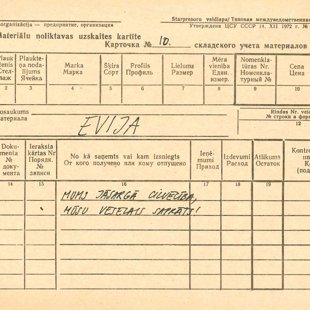 organizācija — предприятие, организация
Starpresoru veidlapa/Типовая междуведомственная
Утверждена ЦСУ СССР 14. XII 1972 г. №
Materiālu noliktavas uzskaites kartīte
Карточка № 10. складского учета материалов
Plauk
Стел-
лаж
Plaukte-
ņa nodalījums
Ячейка
Marka
Марка
Šķira
Сорт
Profils
Профиль
Lielums
Размер
Mēra
vienība
Един.
измер.
Nomenklat. Nr.
Номенкла-
турный №
Cena
Цена
5
6
7
8
9
10
11
nosaukums
материала
EVIJA
Rindas Nr.
№ строки в форме
12
Doku-
menta
№
доку-
мента
Ieraksta
kārtas Nr.
Порядк.
№
записи
No kā saņemts vai kam izsniegts
От кого получено или кому отпущено
Ieņē-
mumi
Приход
Izdevumi
Расход
Atlikums
Остаток
14
15
16
17
18
19
MUMS JĀSARGĀ CILVECĪBA,
MŪSU VESELAIS SAPRĀTS!